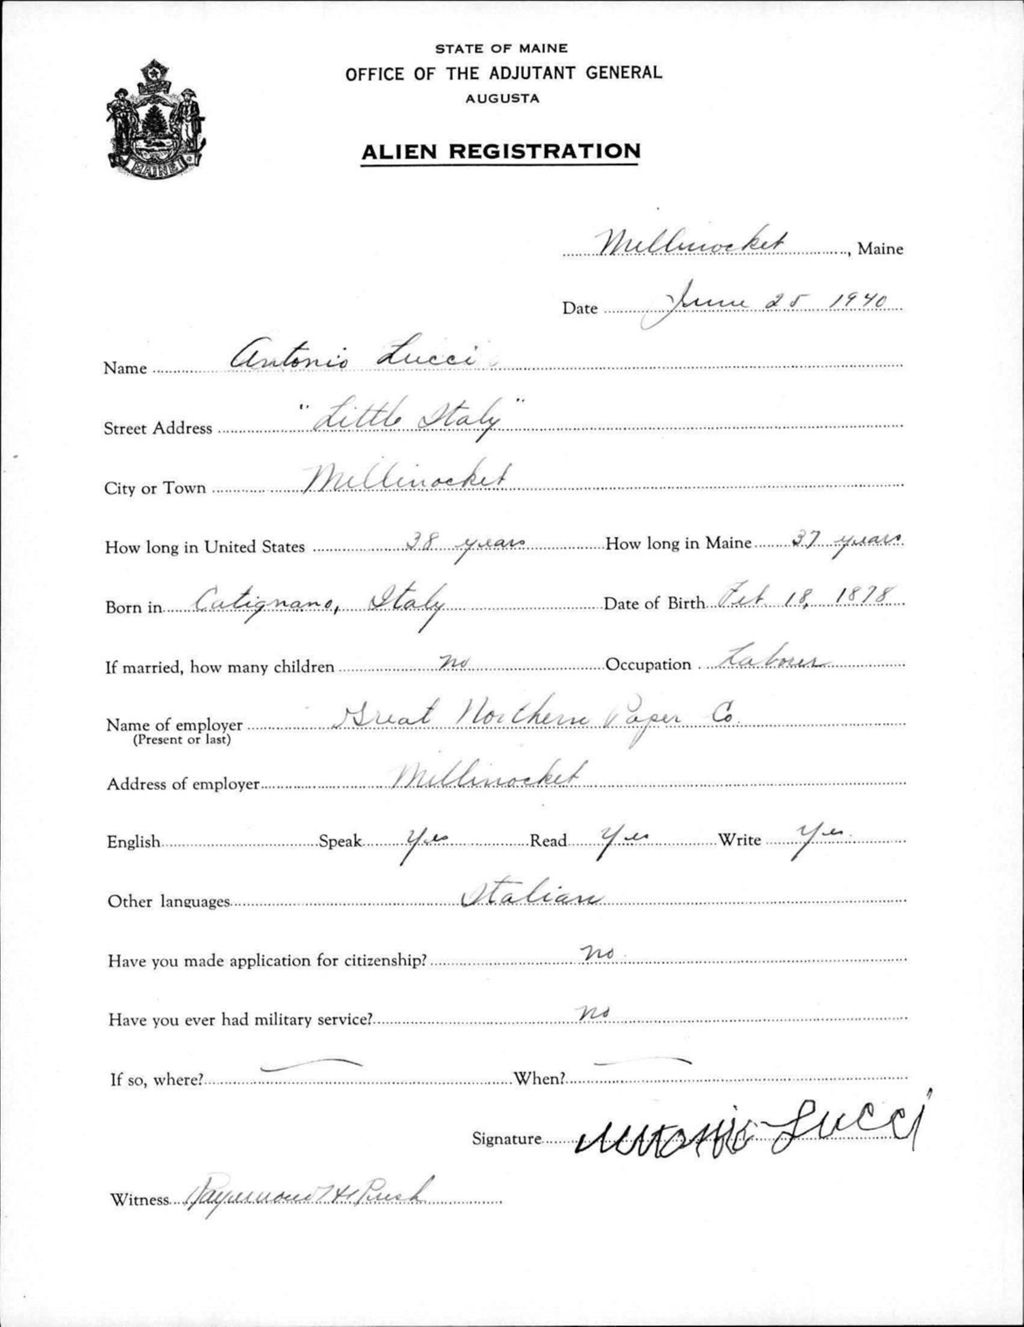 STATE OF MAINE
OFFICE OF THE ADJUTANT GENERAL
AUGUSTA
ALIEN REGISTRATION
MAINE
Millinocket, Maine
Date June 25 1940
Name Antonio Lucci
Street Address "Little Italy"
City or Town Millinocket
How long in United States 38 years How long in Maine 37 years
Born in Catignano, Italy Date of Birth Feb. 18, 1878
If married, how many children no Occupation Laborer
Name of employer Great Northern Paper Co.
(Present or last)
Address of employer Millinocket
English Speak Yes Read Yes Write Yes
Other languages Italian
Have you made application for citizenship? no
Have you ever had military service? no
If so, where? When?
Signature Antonio Lucci
Witness Raymond H Rush